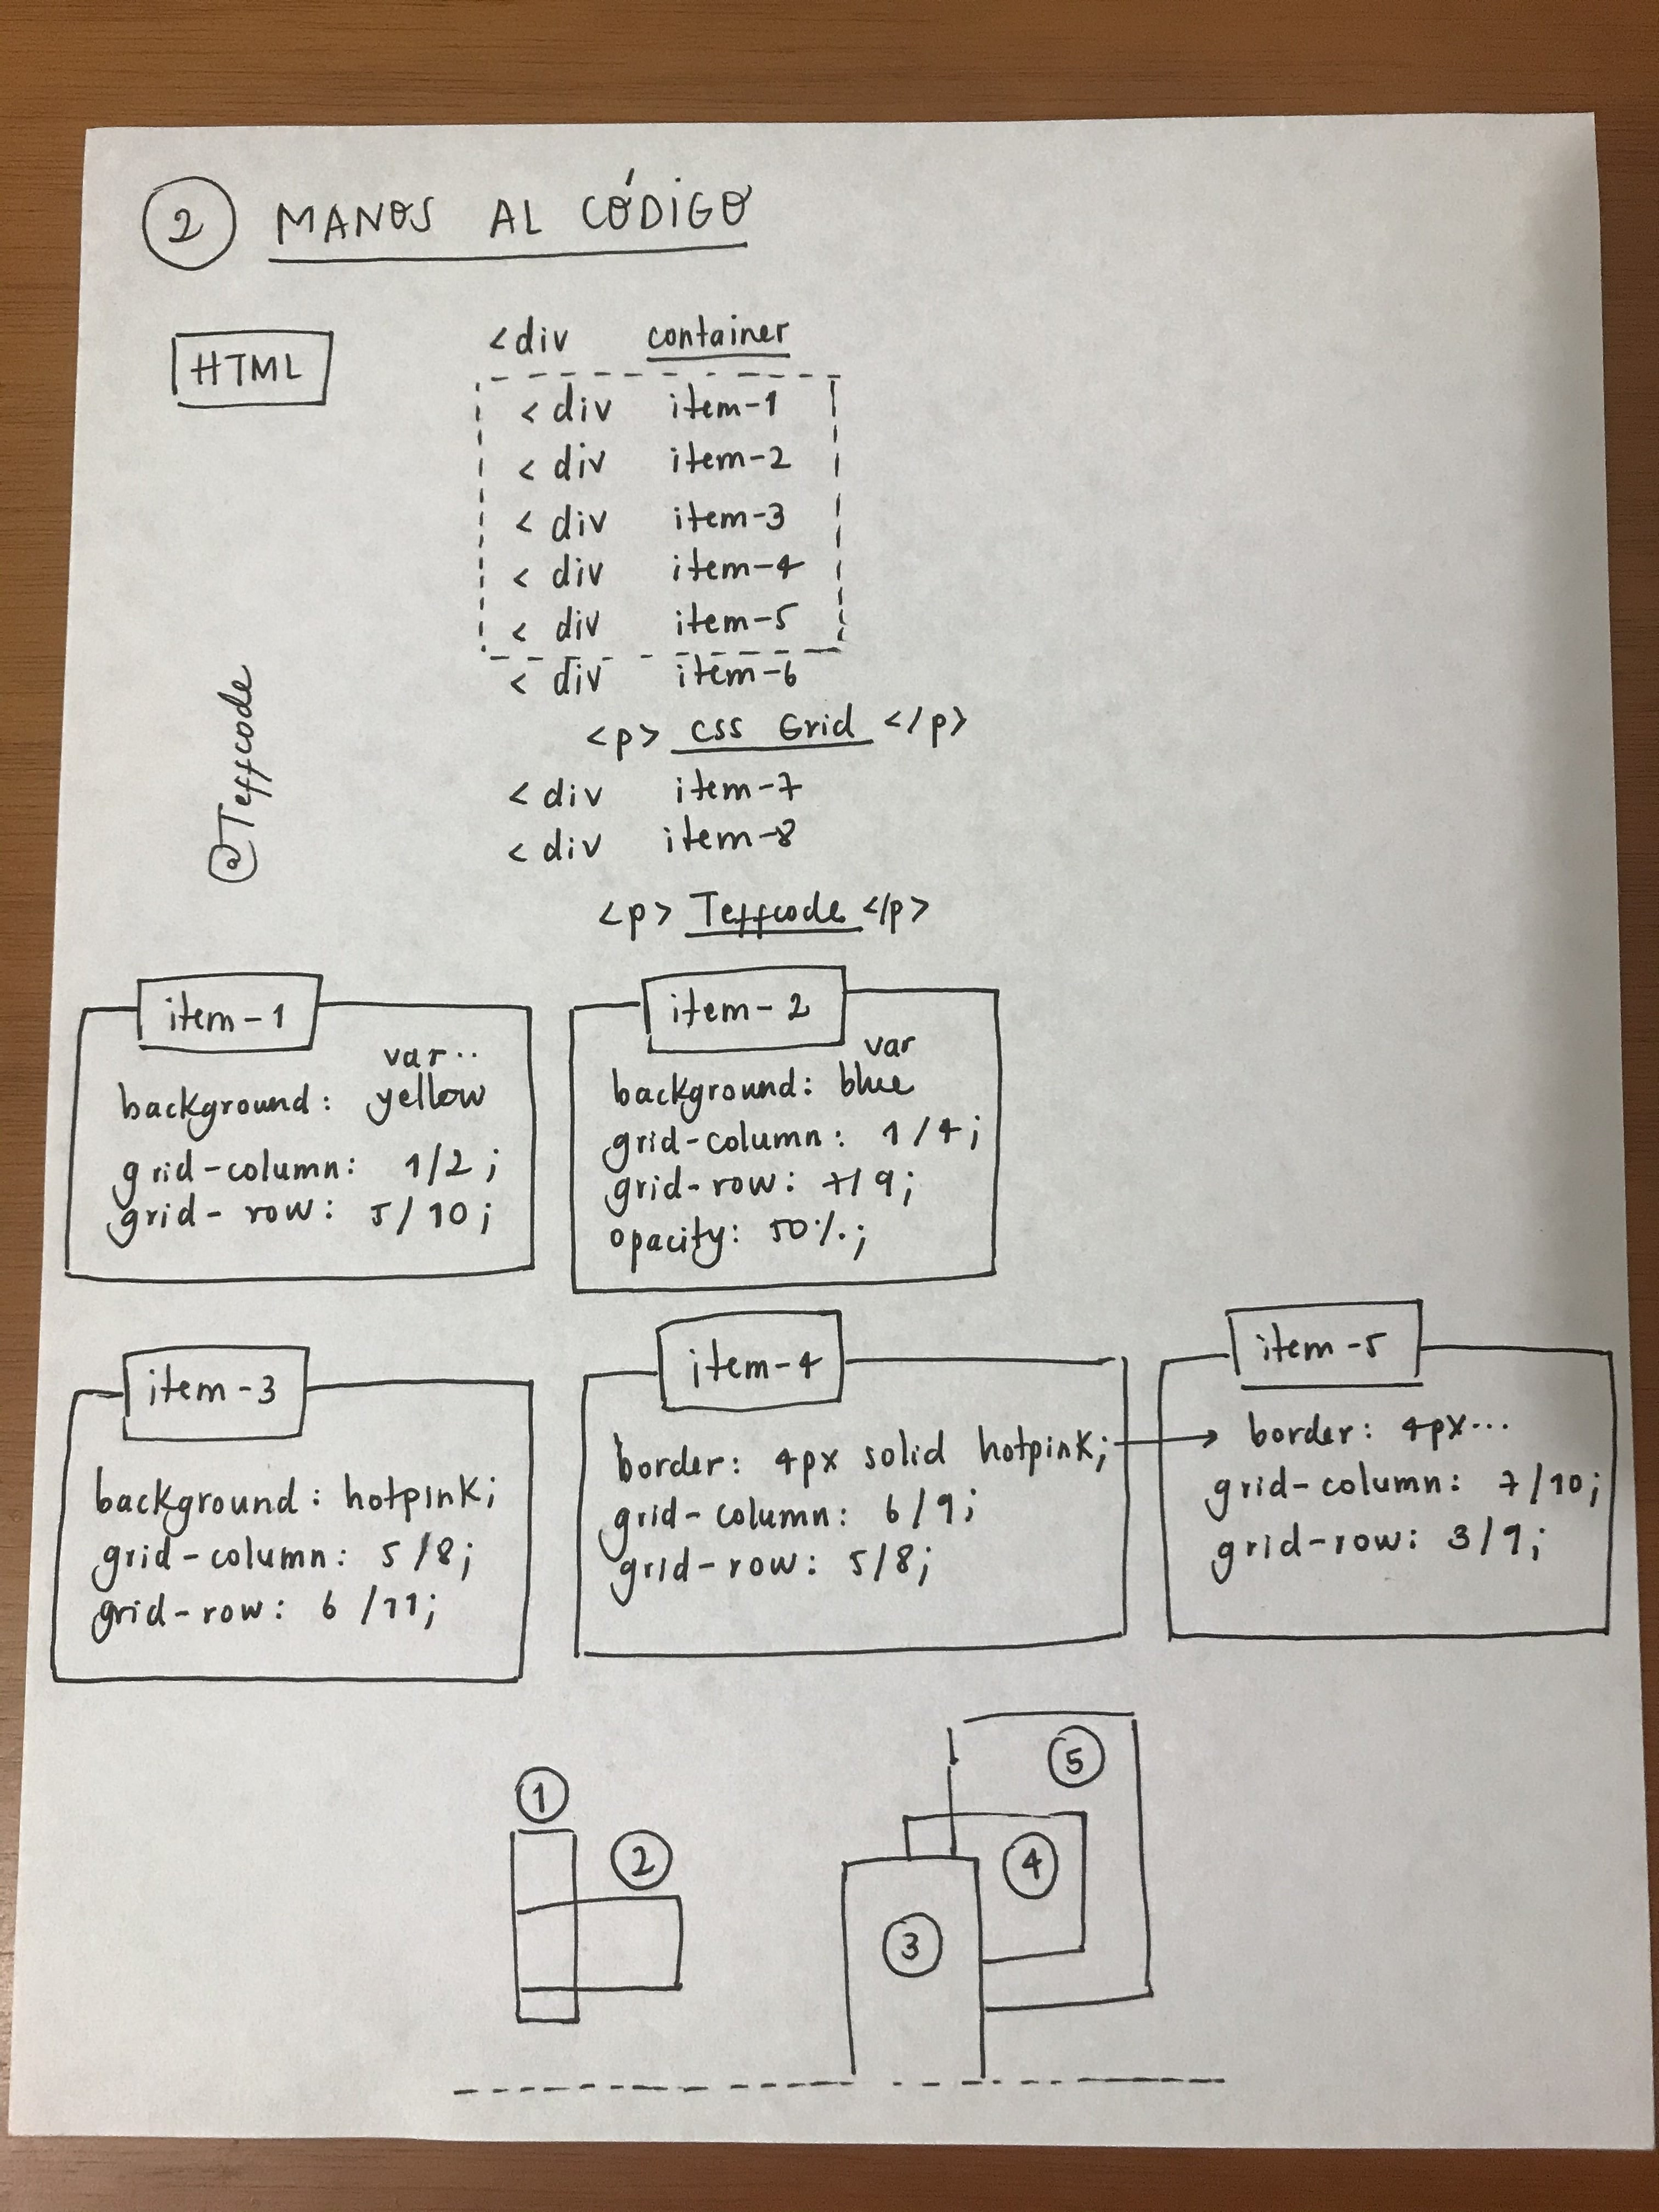 2 MANOS AL CÓDIGO
HTML
<div container
<div item-1
<div item-2
<div item-3
<div item-4
<div item-5
<div item-6
<p> CSS Grid </p>
<div item-7
<div item-8
<p> Teffcode </p>
@Teffcode
item-1
var..
background: yellow
grid-column: 1/2;
grid-row: 5/10;
item-2
var
background: blue
grid-column: 1/4;
grid-row: 7/9;
opacity: 50%;
item-3
background: hotpink;
grid-column: 5/8;
grid-row: 6/11;
item-4
border: 4px solid hotpink;
grid-column: 6/9;
grid-row: 5/8;
item-5
border: 4px...
grid-column: 7/10;
grid-row: 3/9;
1
2
3
4
5